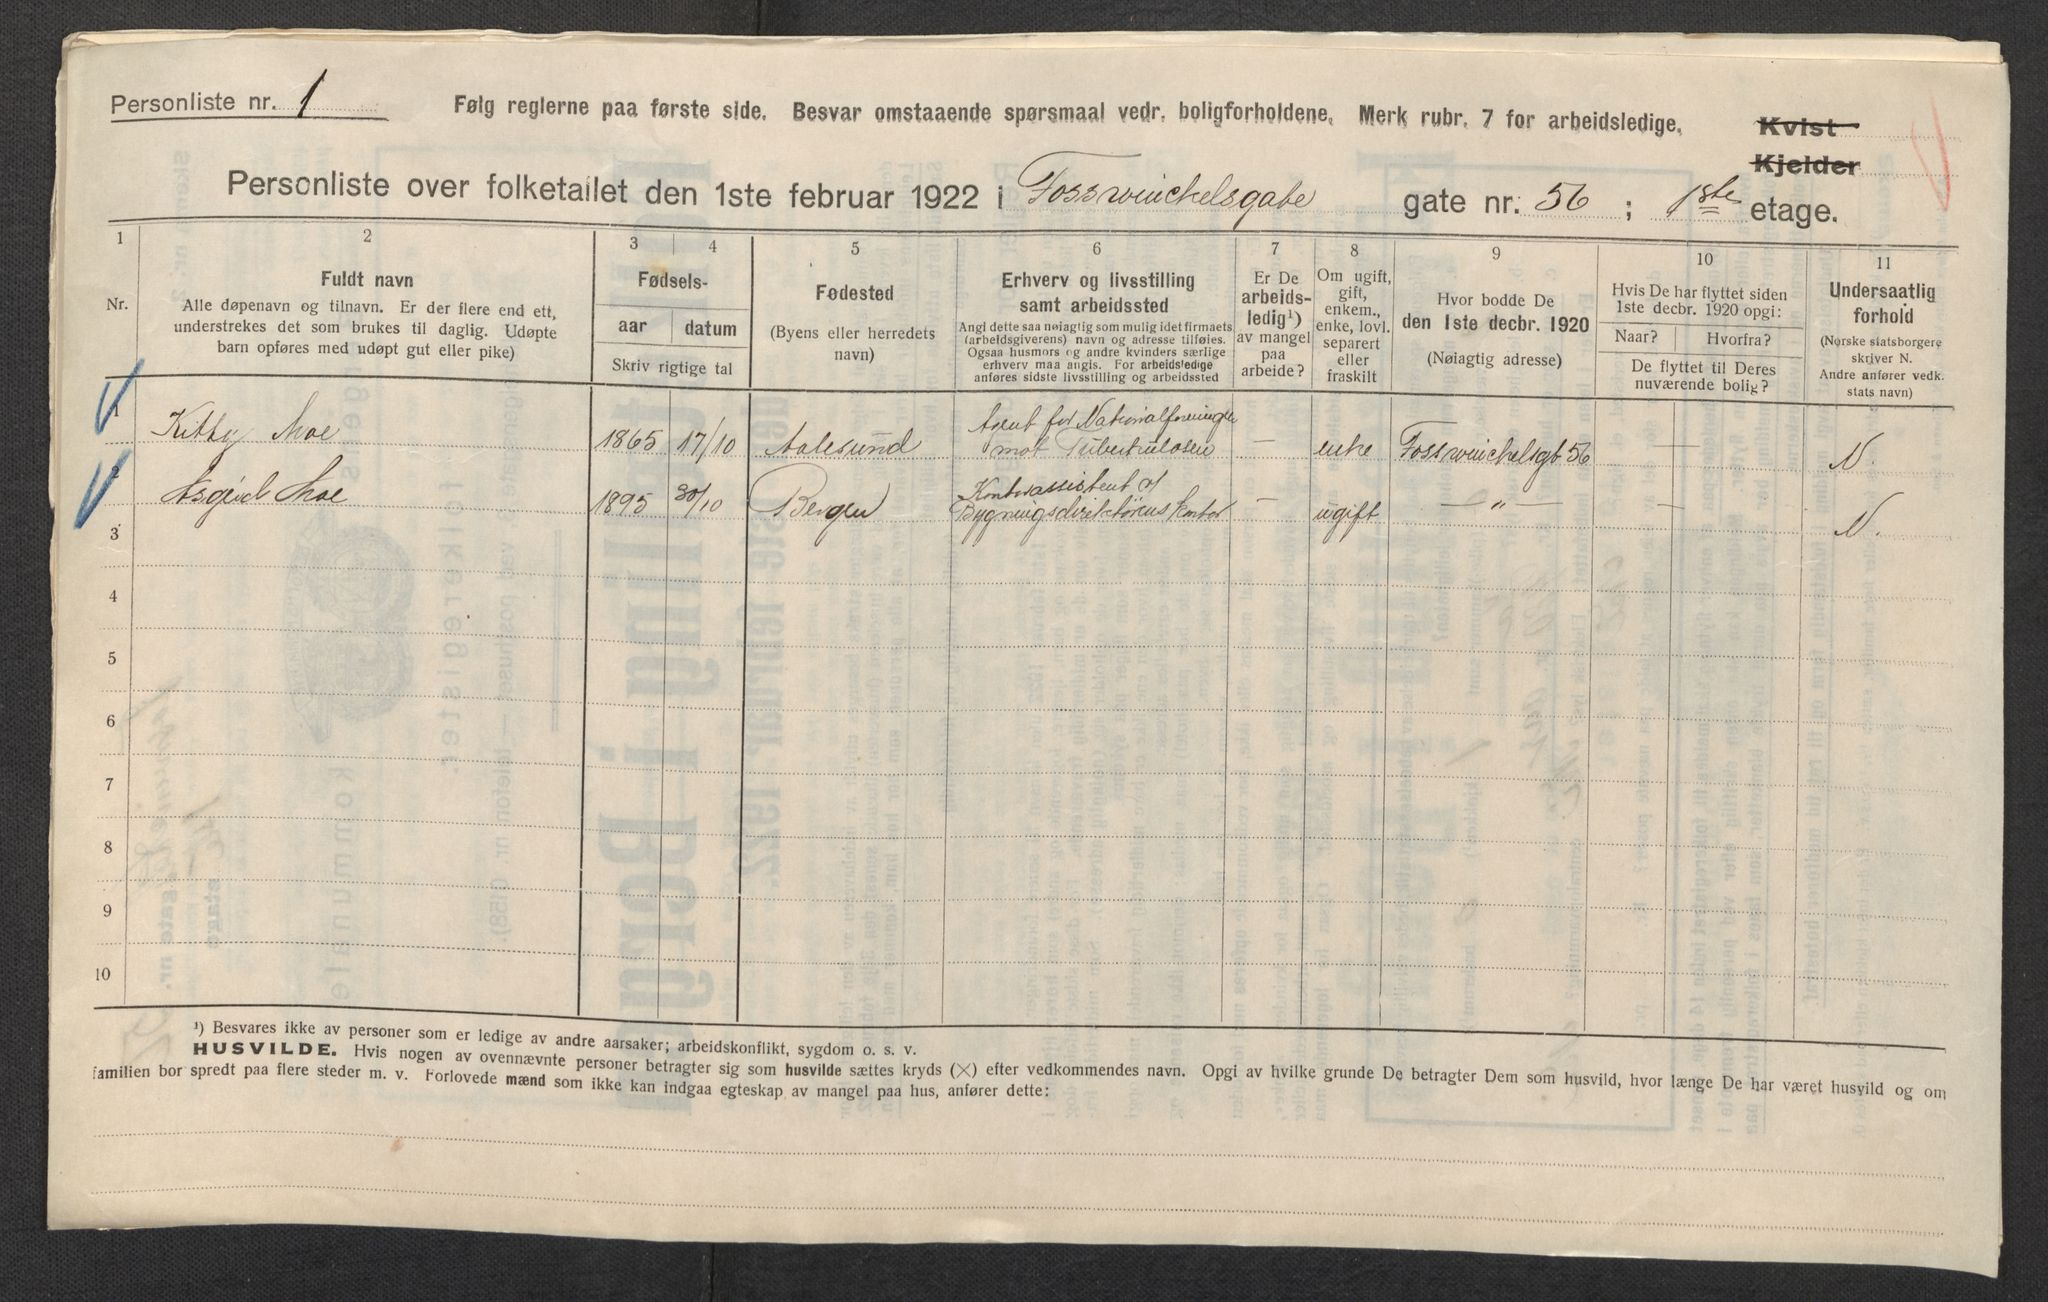 Personliste nr. 1
Følg reglerne paa første side. Besvar omstaaende spørsmaal vedr. boligforholdene. Merk rubr. 7 for arbeidsledige.
Kvist
Kjelder
Personliste over folketallet den 1ste februar 1922 i Fosswinckelsgate gate nr. 56 ; 1ste etage.
1 2 3 4 5 6 7 8 9 10 11
Nr.
Fuldt navn
Alle døpenavn og tilnavn. Er der flere end ett,
understrekes det som brukes til daglig. Udøpte
barn opføres med udøpt gut eller pike)
Fødsels-
aar datum
Skriv rigtige tal
Fødested
(Byens eller herredets
navn)
Erhverv og livsstilling
samt arbeidssted
Angi dette saa nøiaglig som mulig idet firmaets
(arbeidsgiverens) navn og adresse tilføies.
Ogsaa husmors og andre kvinders særlige
erhverv maa angis. For arbeidsledige
anføres sidste livsstilling og arbeidssted
Er De
arbeids-
ledig¹)
av mangel
paa
arbeide?
Om ugift,
gift,
enkem.,
enke, lovl.
separert
eller
fraskilt
Hvor bodde De
den 1ste decbr. 1920
(Nøiagtig adresse)
Hvis De har flyttet siden
1ste decbr. 1920 opgi:
Naar? Hvorfra?
De flyttet til Deres
nuværende bolig?
Undersaatlig
forhold
(Norske statsborgere
skriver N.
Andre anfører vedk.
stats navn)
1 Kitty Moe 1865 17/10 Aalesund Agent for Nationalforeningen mot Tuberkulosen — enke Fosswinckelsgt 56 — N.
2 Moe 1895 30/10 Bergen Kontorassistent v/ Bygningsdirektørens kontor — ugift — " — — N.
3
4
5
6
7
8
9
10
¹) Besvares ikke av personer som er ledige av andre aarsaker; arbeidskonflikt, sygdom o. s. v.
HUSVILDE. Hvis nogen av ovennævnte personer betragter sig som husvilde sættes kryds (×) efter vedkommendes navn. Opgi av hvilke grunde De betragter Dem som husvild, hvor længe De har været husvild og om
familien bor spredt paa flere steder m. v. Forlovede mænd som ikke kan indgaa egteskap av mangel paa hus, anfører dette: